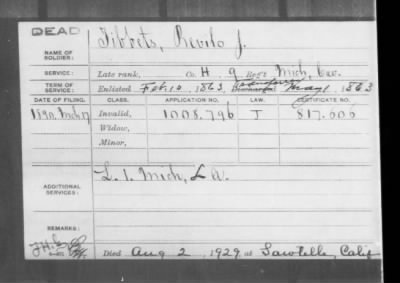 DEAD
NAME OF SOLDIER: Tibbets, Revilo J.
SERVICE: Late rank, Co. H, 9 Reg't Mich. Cav.
TERM OF SERVICE: Enlisted Feb. 10, 1863 Discharged May 1, 1863
DATE OF FILING. CLASS. APPLICATION NO. LAW. CERTIFICATE NO.
1890. Mch 17 Invalid, 1008.796 I 817.606
Widow,
Minor,
ADDITIONAL SERVICES: L. 1. Mich, L A.
REMARKS:
Died Aug 2, 1929 at Sawtelle, Calif